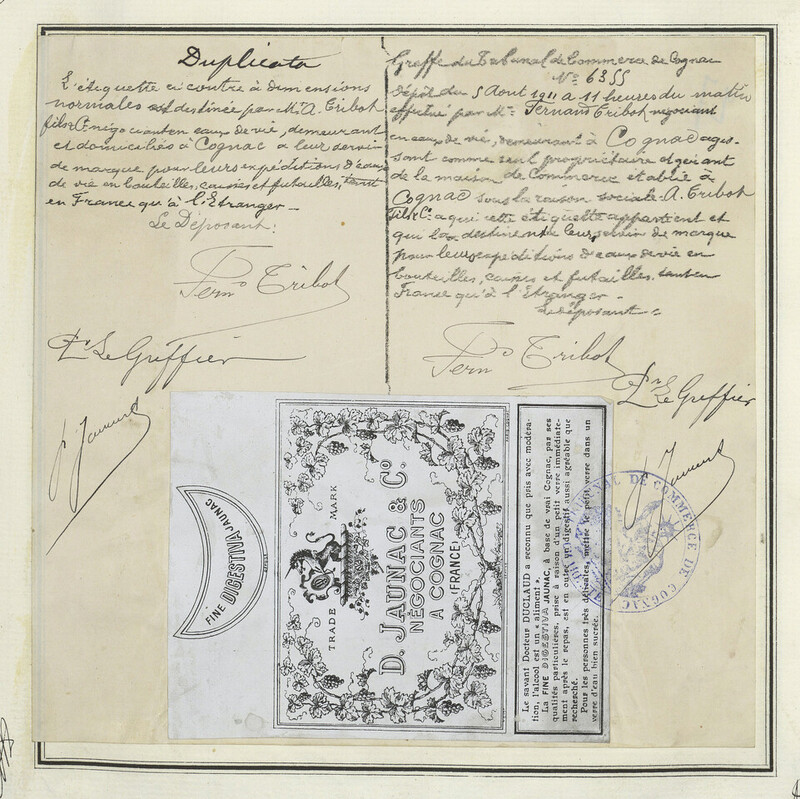 Duplicata
L'étiquette ci contre à dimensions
normales est destinée par Mrs A. Tribot
fils & Cie négociants en eaux de vie, demeurant
et domiciliés à Cognac a leur servir
de marque pour leurs expéditions d'eaux
de vie en bouteilles, caisses et futailles, tant
en France qu'à l'Etranger –
Le Déposant:
Fern Tribot
Le Greffier
Greffe du Tribunal de Commerce de Cognac
No 6355
Dépôt du 5 Aout 1911 à 11 heures du matin
effectué par Mr Fernand Tribot négociant
en eaux de vie, demeurant à Cognac agis-
sant comme seul propriétaire et gérant
de la maison de Commerce établie à
Cognac sous la raison sociale A. Tribot
fils & Cie a qui cette étiquette appartient et
qui la destinent à leur servir de marque
pour leurs expéditions d'eaux de vie en
bouteilles, caisses et futailles tant en
France qu'à l'Etranger –
Le déposant:
Fern Tribot
Le Greffier
FINE DIGESTIVA JAUNAC
TRADE MARK
D. JAUNAC & Co.
NÉGOCIANTS
A COGNAC
(FRANCE)
Le savant Docteur DUCLAUD a reconnu que pris avec modéra-
tion, l'alcool est un « aliment ».
La FINE DIGESTIVA JAUNAC, à base de vrai Cognac, par ses
qualités particulières, prise à raison d'un petit verre immédiate-
ment après le repas, est en outre un digestif aussi agréable que
recherché.
Pour les personnes très délicates, mettre le petit verre dans un
verre d'eau bien sucrée.
TRIBUNAL DE COMMERCE DE COGNAC